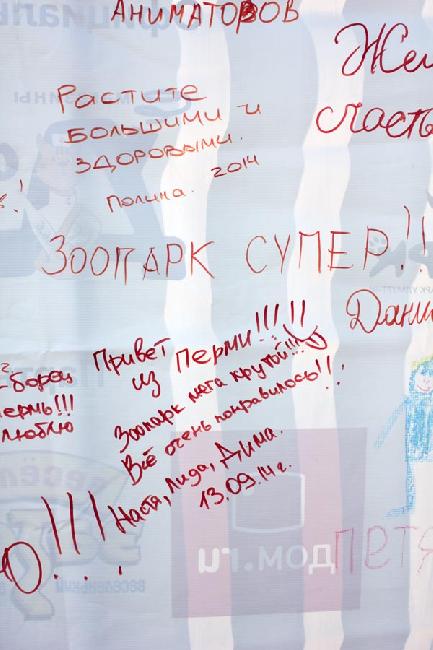 АНИМАТОРОВ
Растите
большими и
здоровыми.
Полина. 2014
счасть
ЗООПАРК СУПЕР!!
Привет
из Перми!!!!!
Зоопарк мега крутой!!!
Всё очень понравилось!!!
Настя, Лида, Дима.
13.09.14г.
-борец
пермь!!!
люблю
Ю!!!
ПЕТЯ
дом.ru